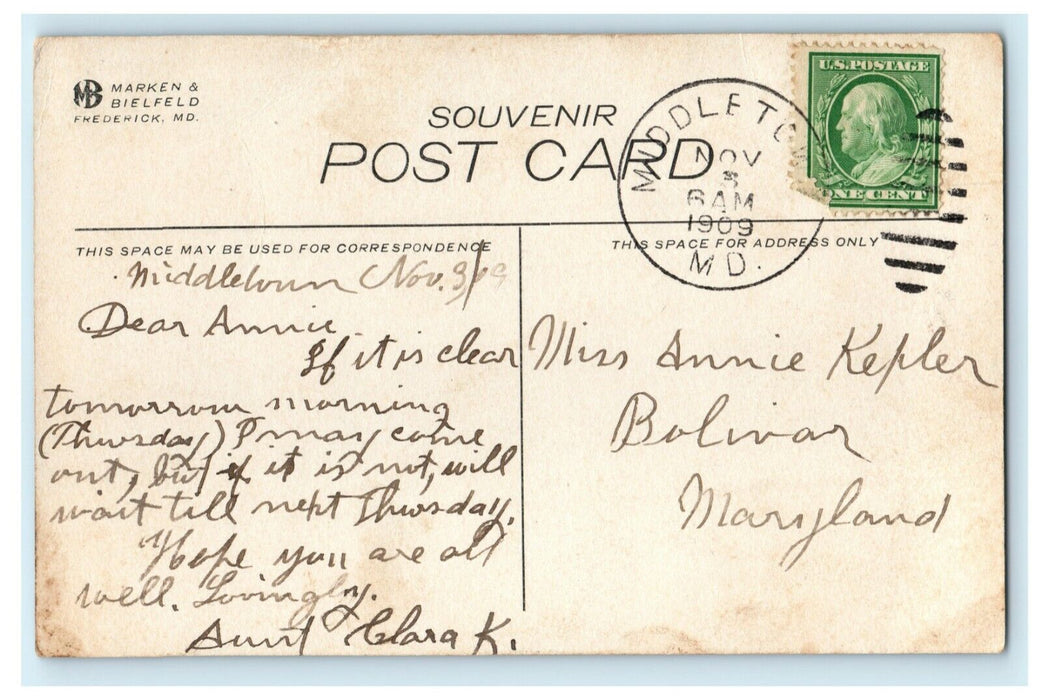 MB MARKEN &
BIELFELD
FREDERICK, MD.
SOUVENIR
POST CARD
U.S. POSTAGE
ONE CENT
MIDDLETOWN
NOV
3
6 AM
1909
MD.
THIS SPACE MAY BE USED FOR CORRESPONDENCE
Middletown Nov. 3, /09
Dear Annie
If it is clear
tomorrow morning
(Thursday) I may come
out, but if it is not, will
wait till next Thursday.
Hope you are all
well. Lovingly.
Aunt Clara K.
THIS SPACE FOR ADDRESS ONLY
Miss Annie Kepler
Bolivar
Maryland